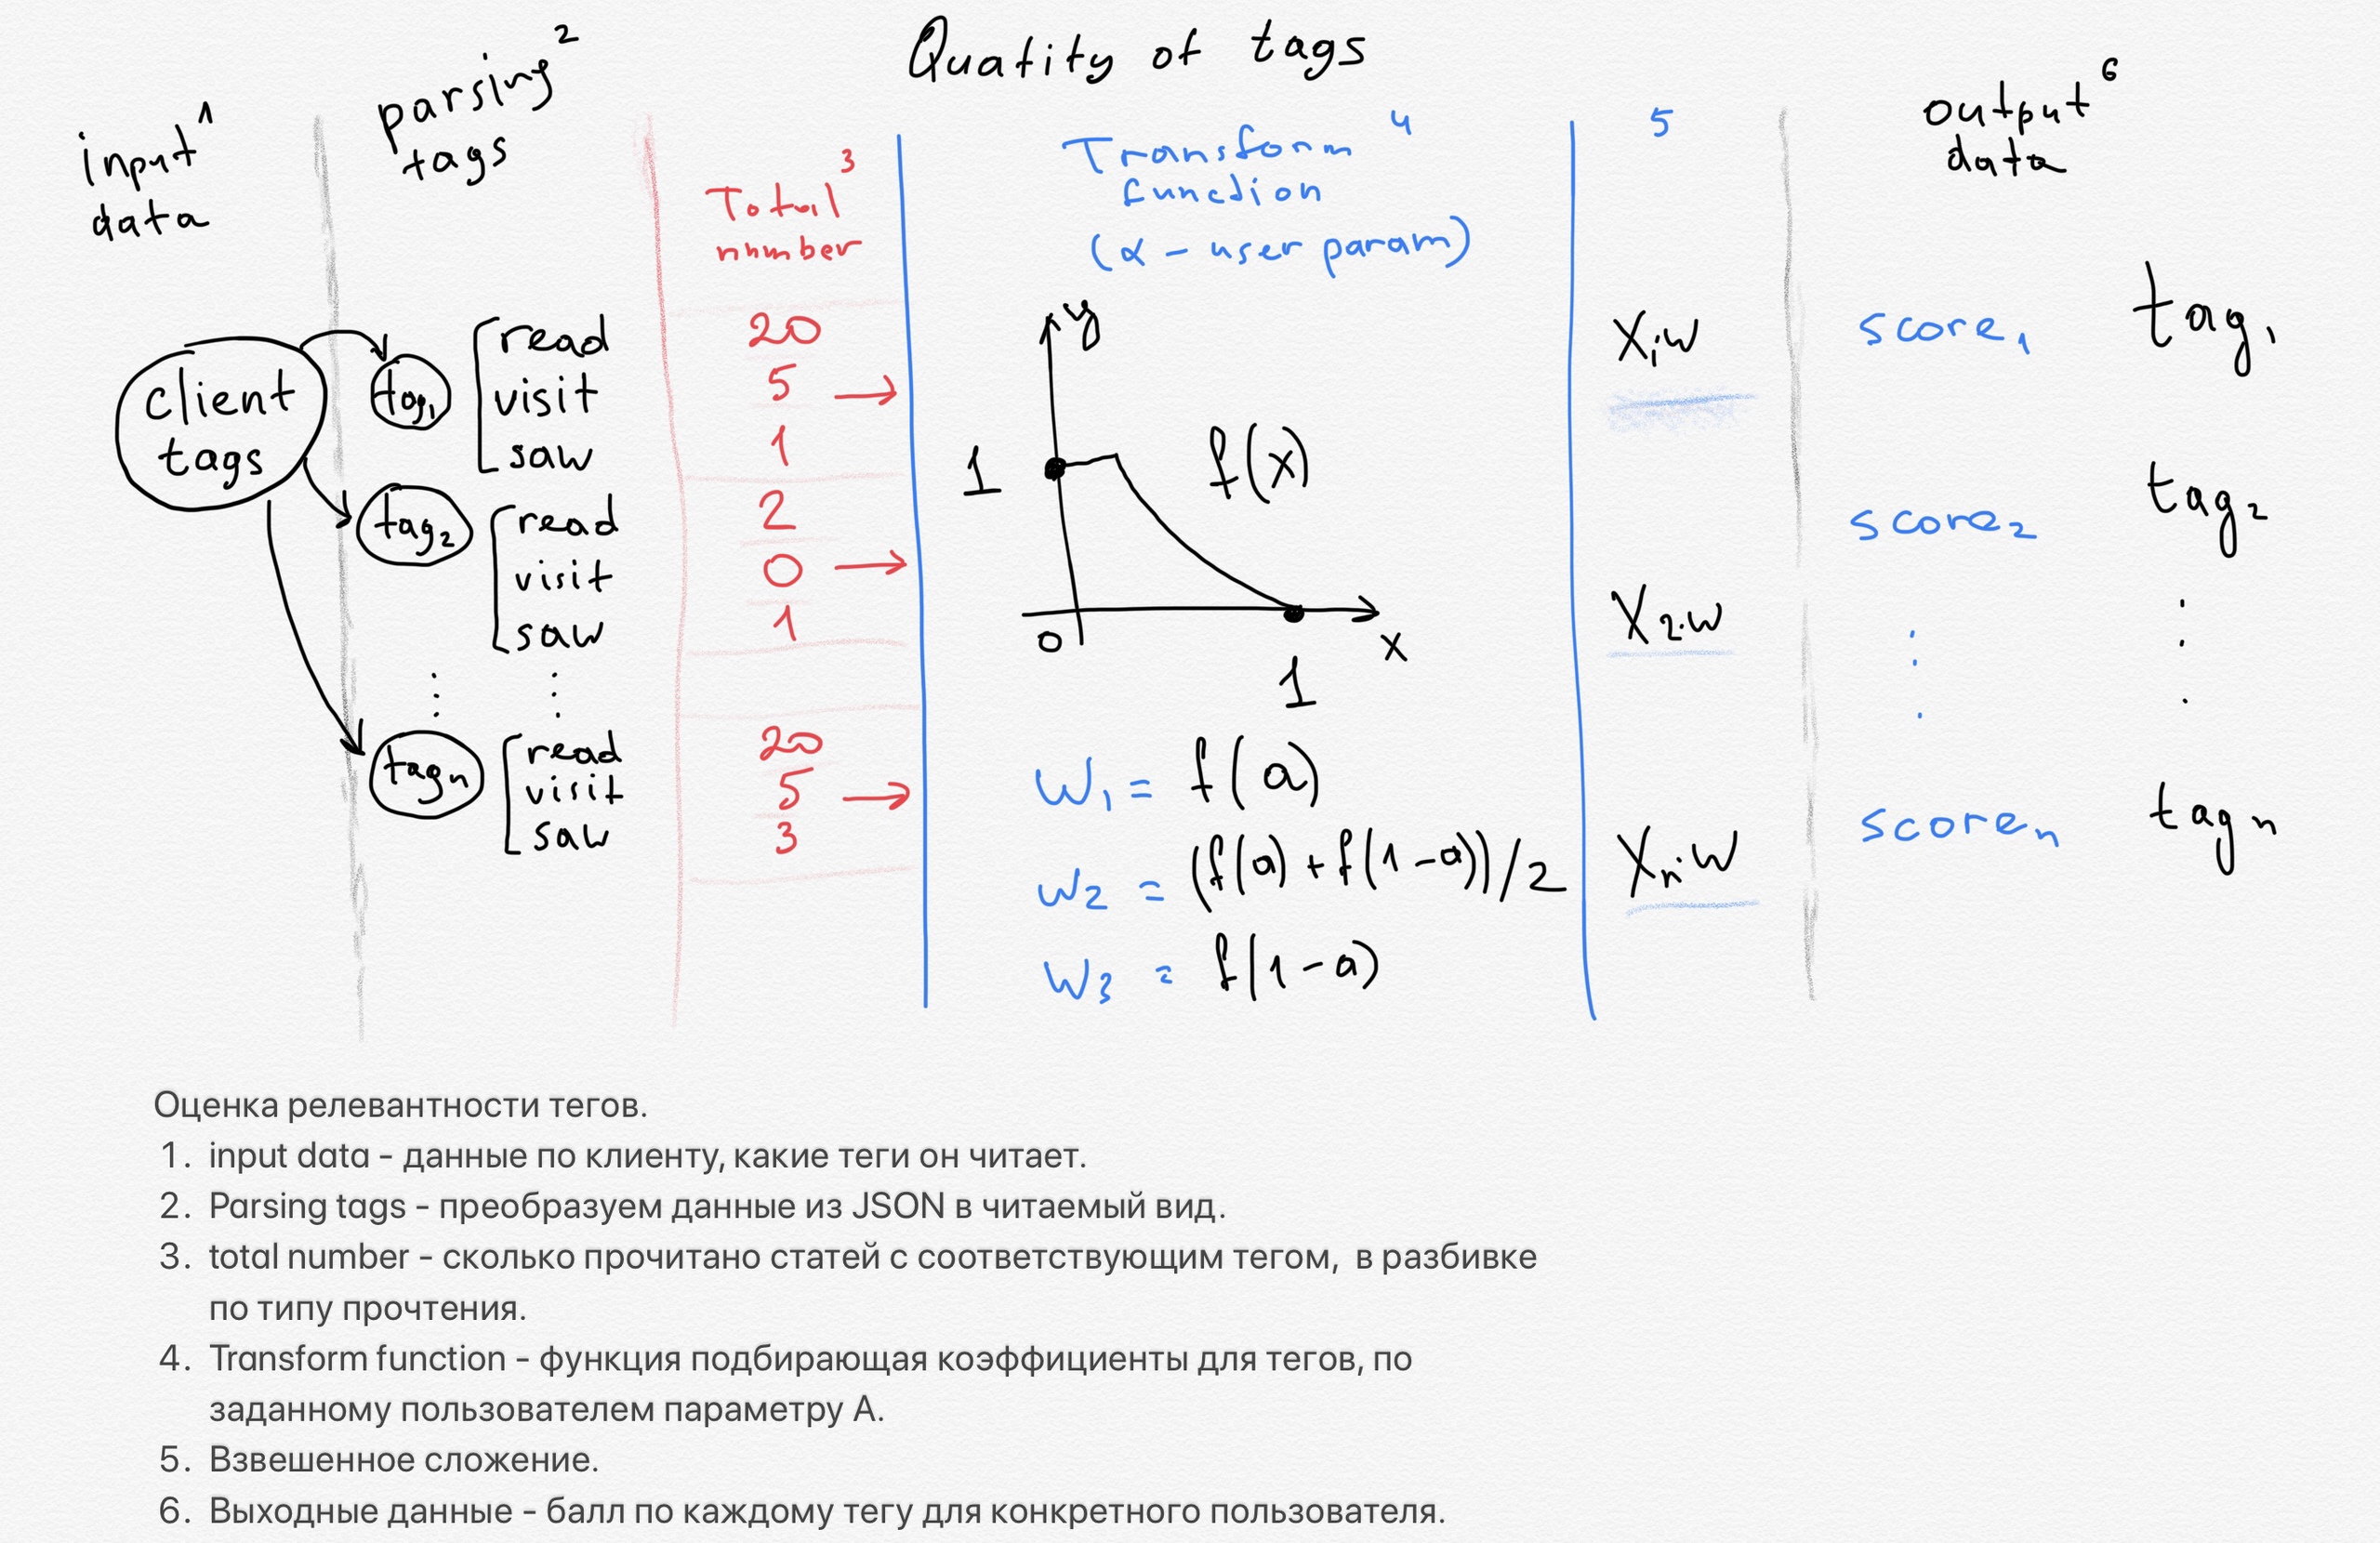 Quality of tags
input¹
data
parsing²
tags
Total³
number
Transform⁴
function
(α – user param)
5
output⁶
data
client
tags
tag₁
read
visit
saw
tag₂
read
visit
saw
⋮
⋮
tagₙ
read
visit
saw
20
5 →
1
2
0 →
1
20
5 →
3
y
1
f(x)
0
1
x
w₁ = f(a)
w₂ = (f(a) + f(1-a))/2
w₃ = f(1-a)
X₁·w
X₂·w
Xₙ·w
score₁
score₂
⋮
scoreₙ
tag₁
tag₂
⋮
tagₙ
Оценка релевантности тегов.
1. input data - данные по клиенту, какие теги он читает.
2. Parsing tags - преобразуем данные из JSON в читаемый вид.
3. total number - сколько прочитано статей с соответствующим тегом, в разбивке
по типу прочтения.
4. Transform function - функция подбирающая коэффициенты для тегов, по
заданному пользователем параметру А.
5. Взвешенное сложение.
6. Выходные данные - балл по каждому тегу для конкретного пользователя.